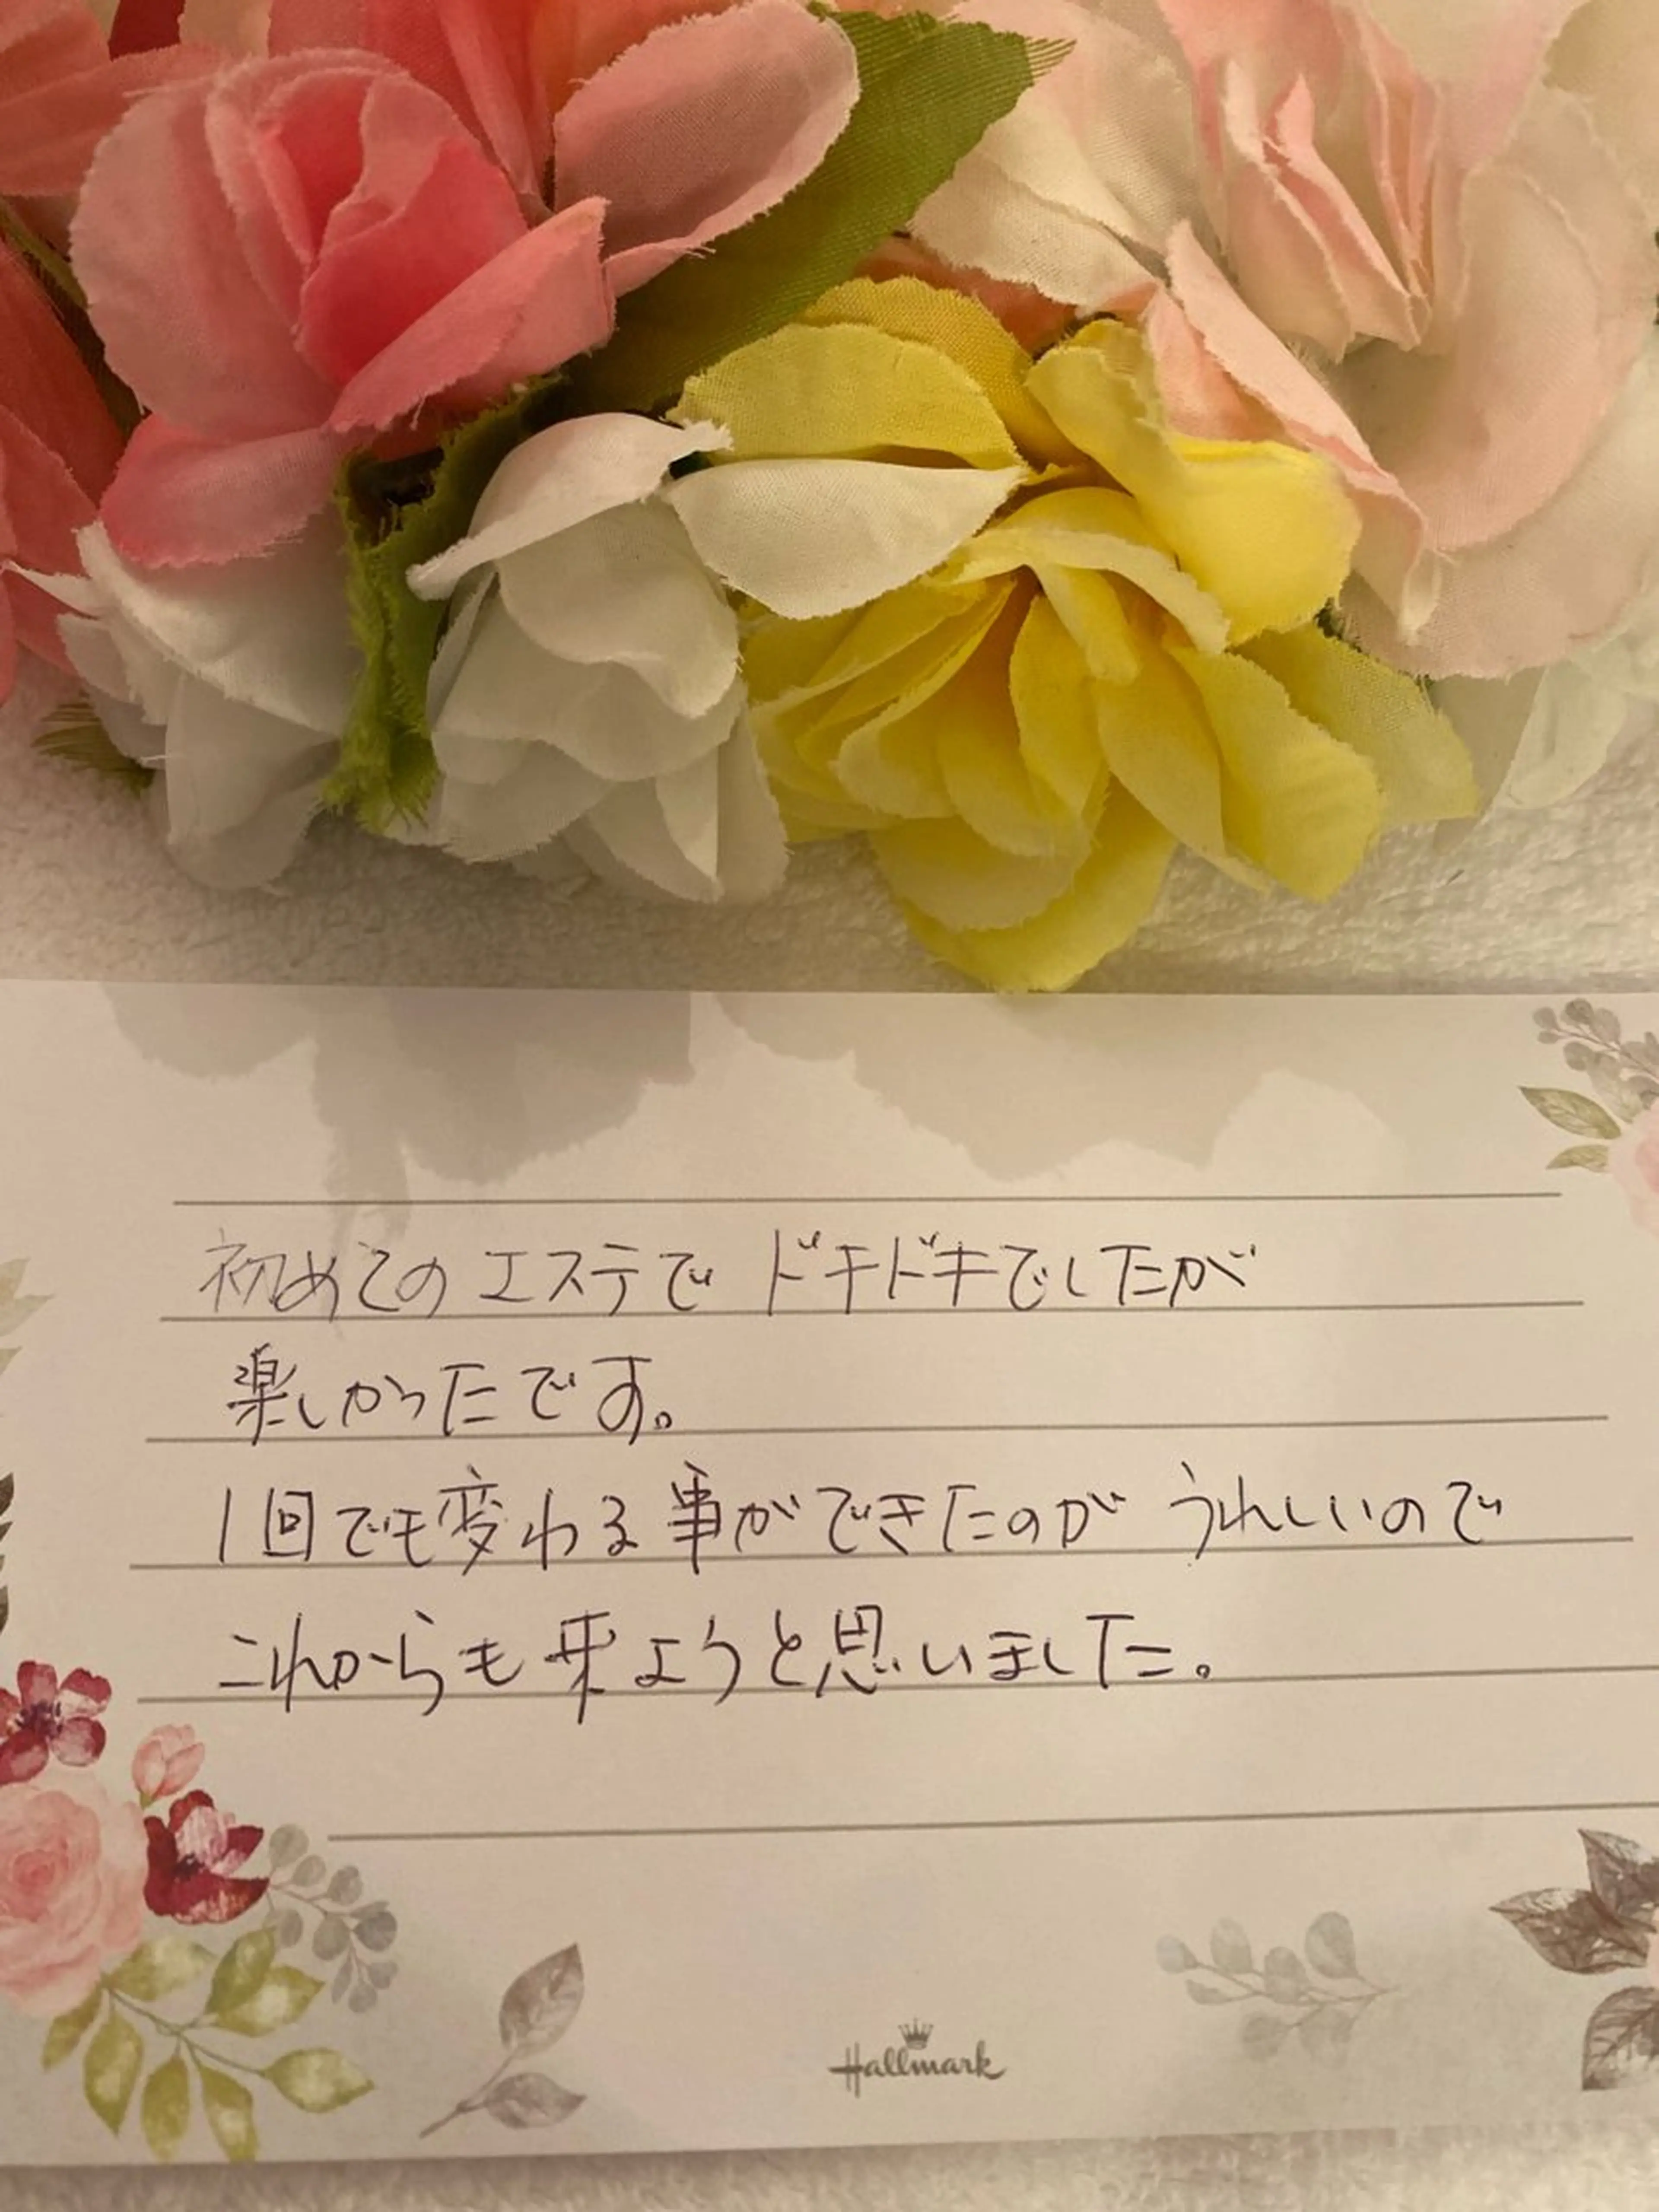 初めてのエステでドキドキでしたが
楽しかったです。
1回でも変わる事ができたのがうれしいので
これからも来ようと思いました。
Hallmark